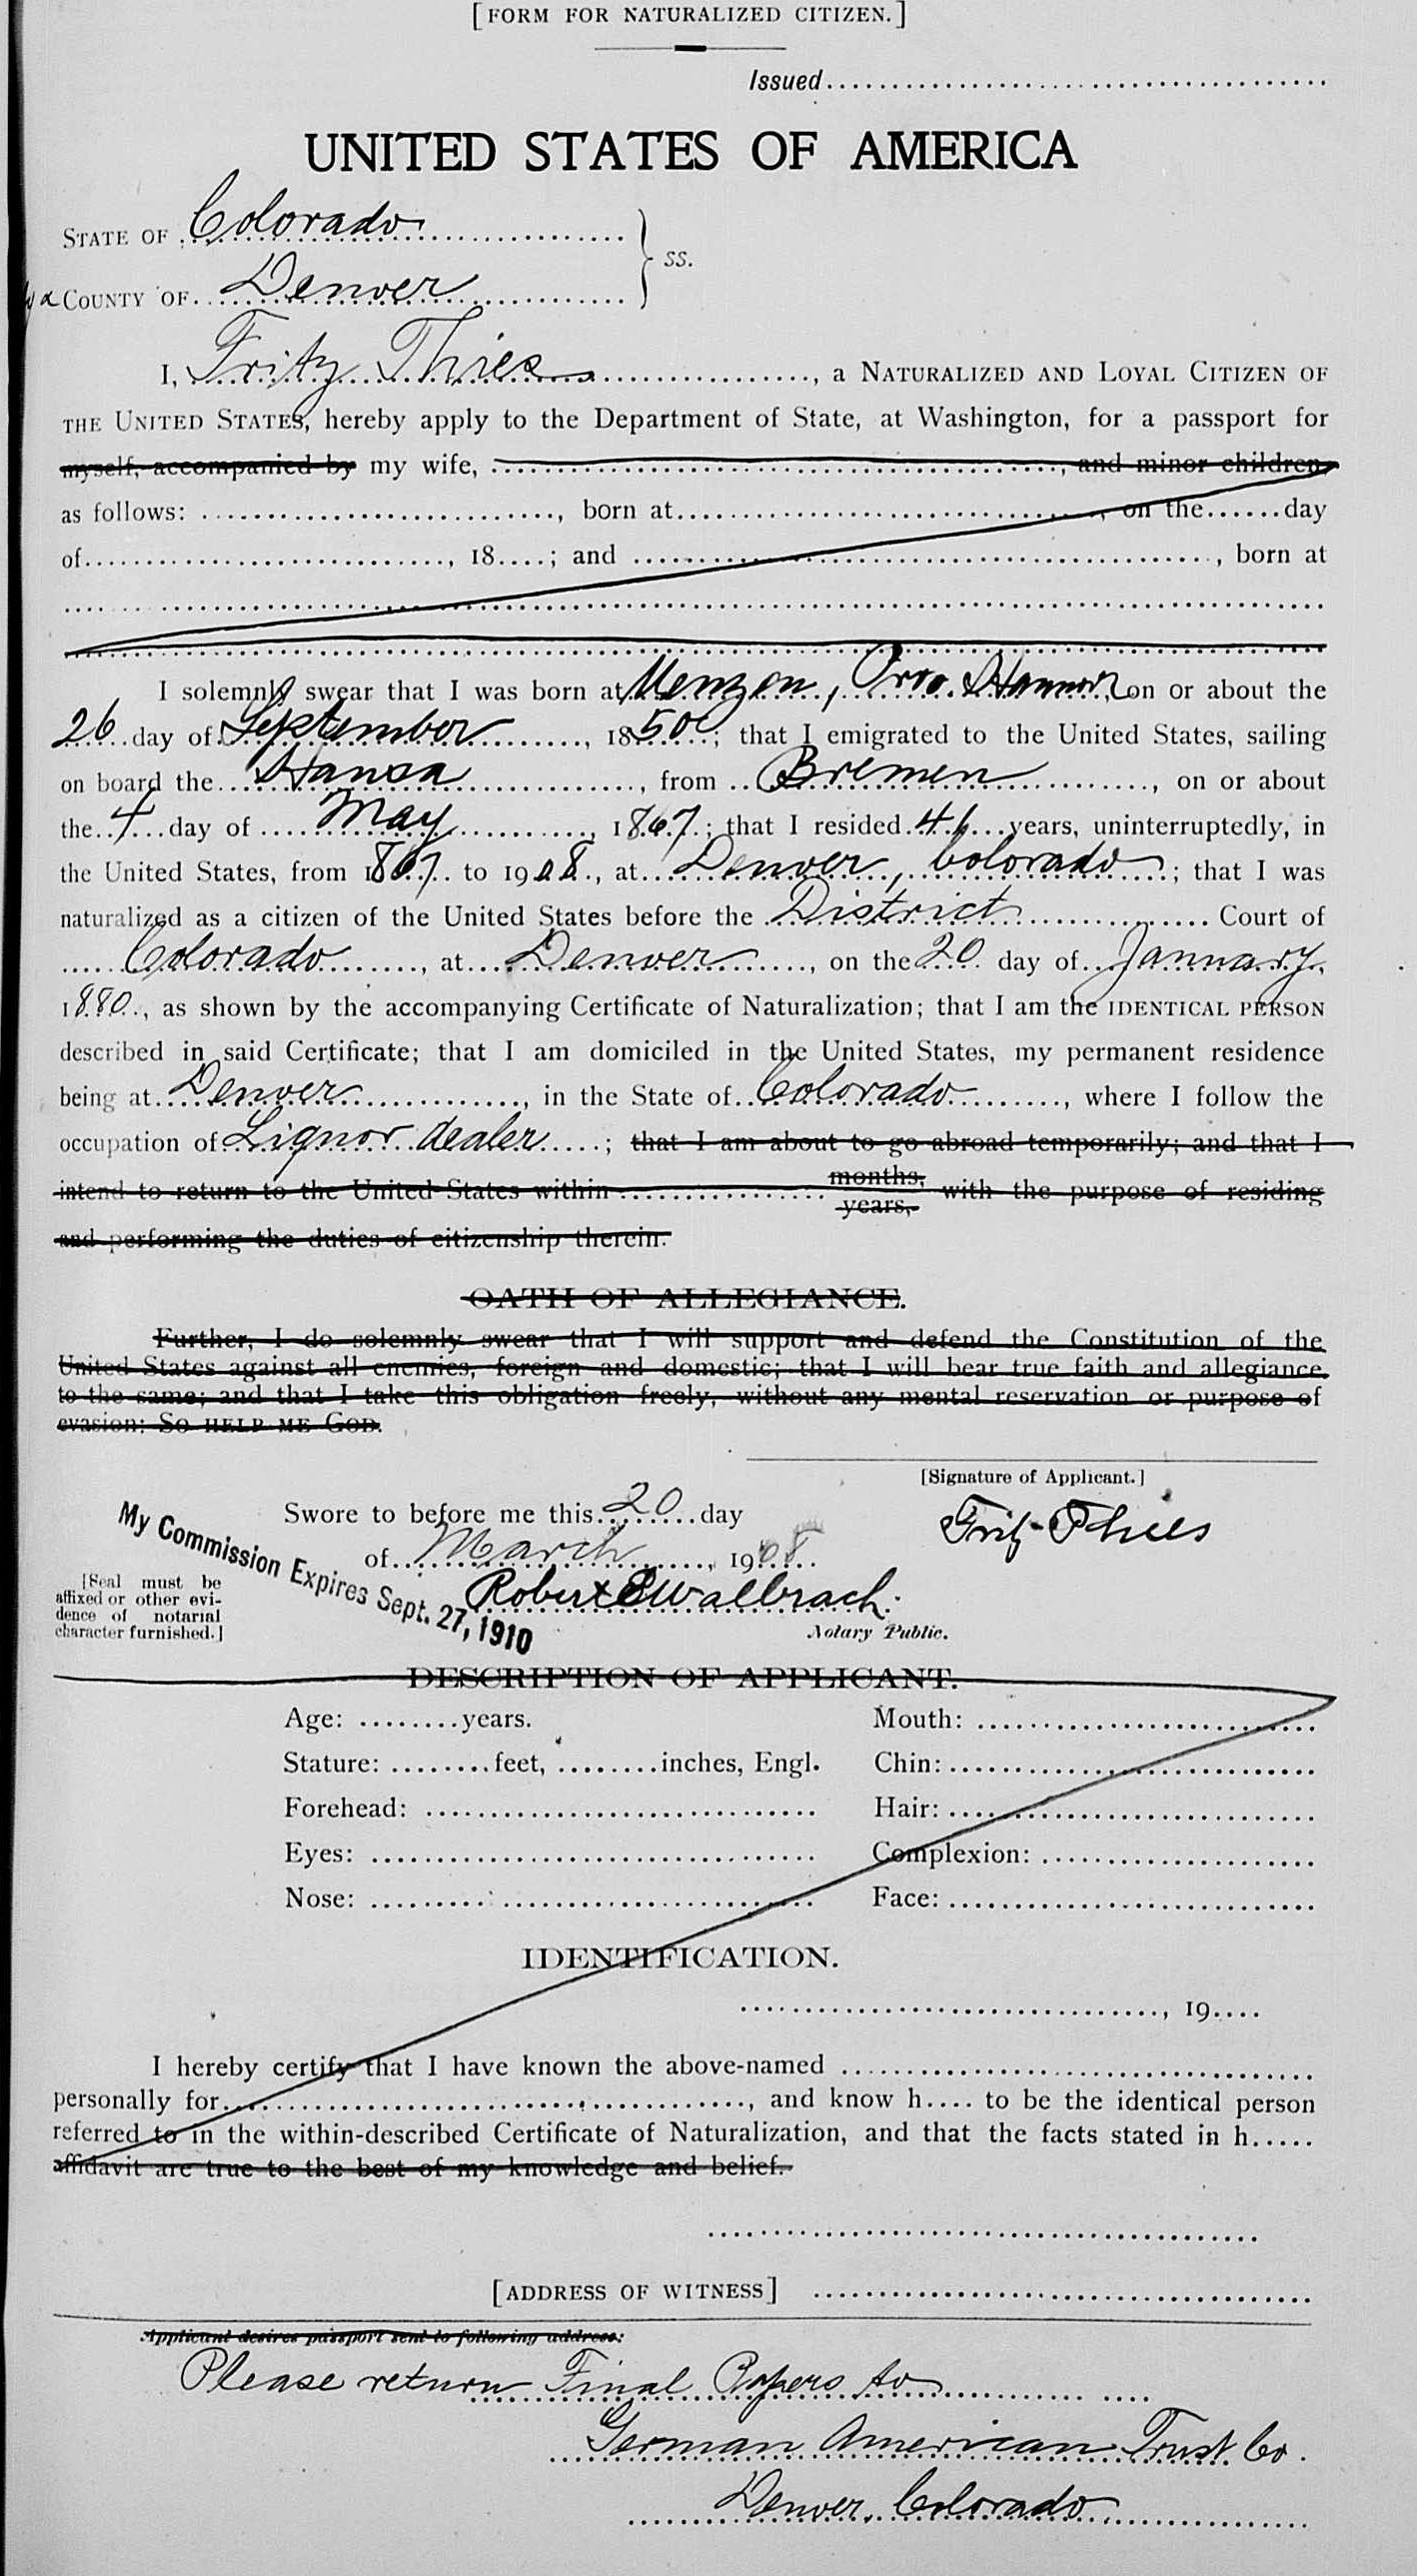 [FORM FOR NATURALIZED CITIZEN.]
Issued
UNITED STATES OF AMERICA
STATE OF Colorado
ss.
COUNTY OF Denver
I, Fritz Thies, a NATURALIZED AND LOYAL CITIZEN OF
THE UNITED STATES, hereby apply to the Department of State, at Washington, for a passport for
myself, accompanied by my wife, , and minor children,
as follows: , born at , on the day
of , 18 ; and , born at
I solemnly swear that I was born at Menzen, Prov. Hannov. on or about the
26 day of September, 1850; that I emigrated to the United States, sailing
on board the Hansa, from Bremen, on or about
the 4 day of May, 1867; that I resided 41 years, uninterruptedly, in
the United States, from 1867 to 1908, at Denver, Colorado; that I was
naturalized as a citizen of the United States before the District Court of
Colorado, at Denver, on the 20 day of January,
1880, as shown by the accompanying Certificate of Naturalization; that I am the IDENTICAL PERSON
described in said Certificate; that I am domiciled in the United States, my permanent residence
being at Denver, in the State of Colorado, where I follow the
occupation of Liquor dealer; that I am about to go abroad temporarily; and that I
intend to return to the United States within months, years, with the purpose of residing
and performing the duties of citizenship therein.
OATH OF ALLEGIANCE.
Further, I do solemnly swear that I will support and defend the Constitution of the
United States against all enemies, foreign and domestic; that I will bear true faith and allegiance
to the same; and that I take this obligation freely, without any mental reservation or purpose of
evasion: SO HELP ME GOD.
[Signature of Applicant.]
Fritz Thies
Swore to before me this 20 day
of March, 1908
My Commission Expires Sept. 27, 1910
[Seal must be
affixed or other evi-
dence of notarial
character furnished.]
Robert E Walbrach.
Notary Public.
DESCRIPTION OF APPLICANT.
Age: years. Mouth:
Stature: feet, inches, Engl. Chin:
Forehead: Hair:
Eyes: Complexion:
Nose: Face:
IDENTIFICATION.
, 19
I hereby certify that I have known the above-named
personally for , and know h to be the identical person
referred to in the within-described Certificate of Naturalization, and that the facts stated in h
affidavit are true to the best of my knowledge and belief.
[ADDRESS OF WITNESS]
Applicant desires passport sent to following address:
Please return Final Papers to
German American Trust Co.
Denver, Colorado